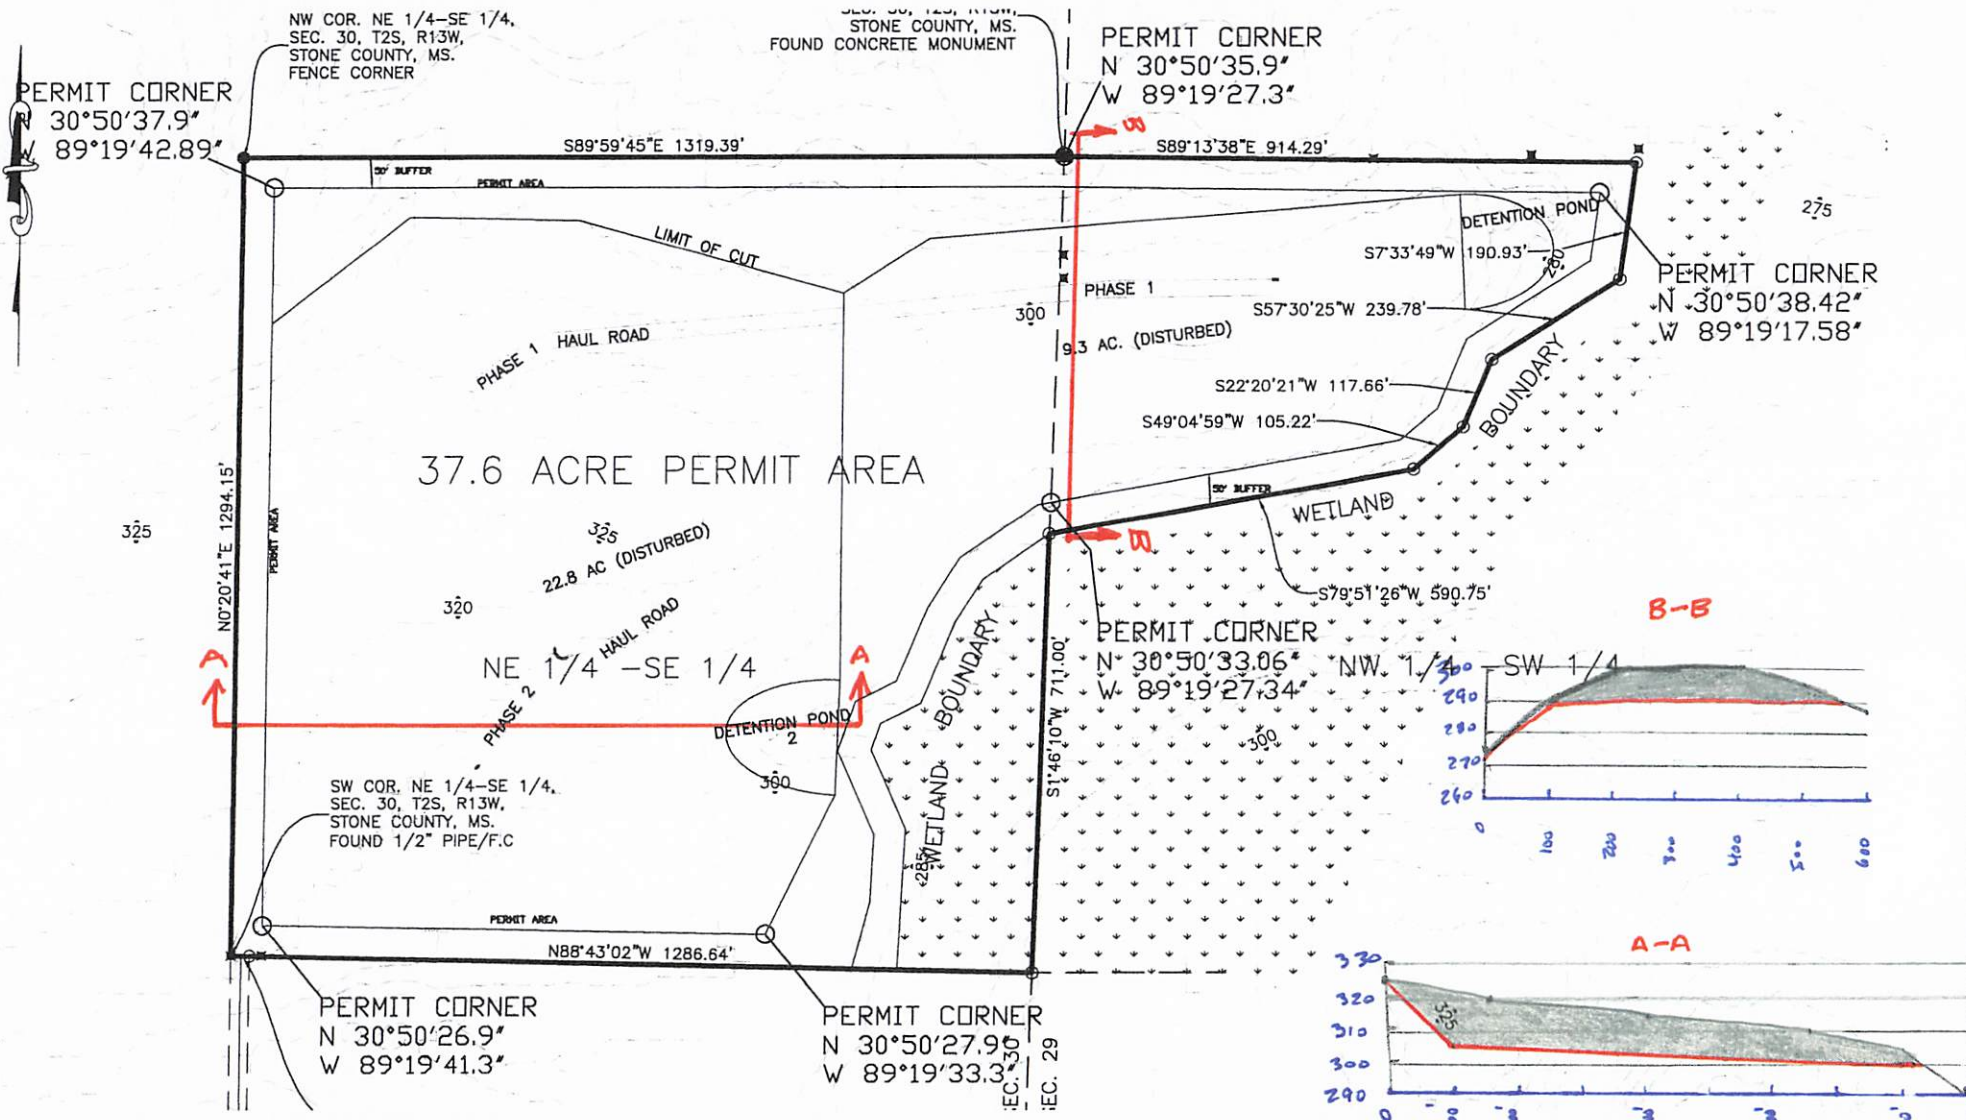 NW COR. NE 1/4-SE 1/4,
SEC. 30, T2S, R13W,
STONE COUNTY, MS.
FENCE CORNER
SEC. 30, T2S, R13W,
STONE COUNTY, MS.
FOUND CONCRETE MONUMENT
PERMIT CORNER
N 30°50'35.9"
W 89°19'27.3"
PERMIT CORNER
N 30°50'37.9"
W 89°19'42.89"
B
S89°59'45"E 1319.39'
S89°13'38"E 914.29'
50' BUFFER
PERMIT AREA
DETENTION POND
275
LIMIT OF CUT
S7°33'49"W 190.93'
280
PERMIT CORNER
N 30°50'38.42"
W 89°19'17.58"
PHASE 1
300
S57°30'25"W 239.78'
PHASE 1 HAUL ROAD
9.3 AC. (DISTURBED)
S22°20'21"W 117.66'
BOUNDARY
S49°04'59"W 105.22'
37.6 ACRE PERMIT AREA
50' BUFFER
WETLAND
N0°20'41"E 1294.15'
PERMIT AREA
325
325
B
22.8 AC (DISTURBED)
S79°51'26"W 590.75'
320
HAUL ROAD
PHASE 2
B-B
PERMIT CORNER
N 30°50'33.06"
W 89°19'27.34"
NE 1/4 -SE 1/4
NW 1/4 - SW 1/4
A
A
BOUNDARY
S1°46'10"W 711.00'
300
290
280
270
260
0
100
200
300
400
500
600
DETENTION POND
2
300
300
SW COR. NE 1/4-SE 1/4,
SEC. 30, T2S, R13W,
STONE COUNTY, MS.
FOUND 1/2" PIPE/F.C
WETLAND
285
PERMIT AREA
N88°43'02"W 1286.64'
A-A
330
320
310
300
290
325
0
PERMIT CORNER
N 30°50'26.9"
W 89°19'41.3"
PERMIT CORNER
N 30°50'27.9"
W 89°19'33.3"
SEC. 30
SEC. 29